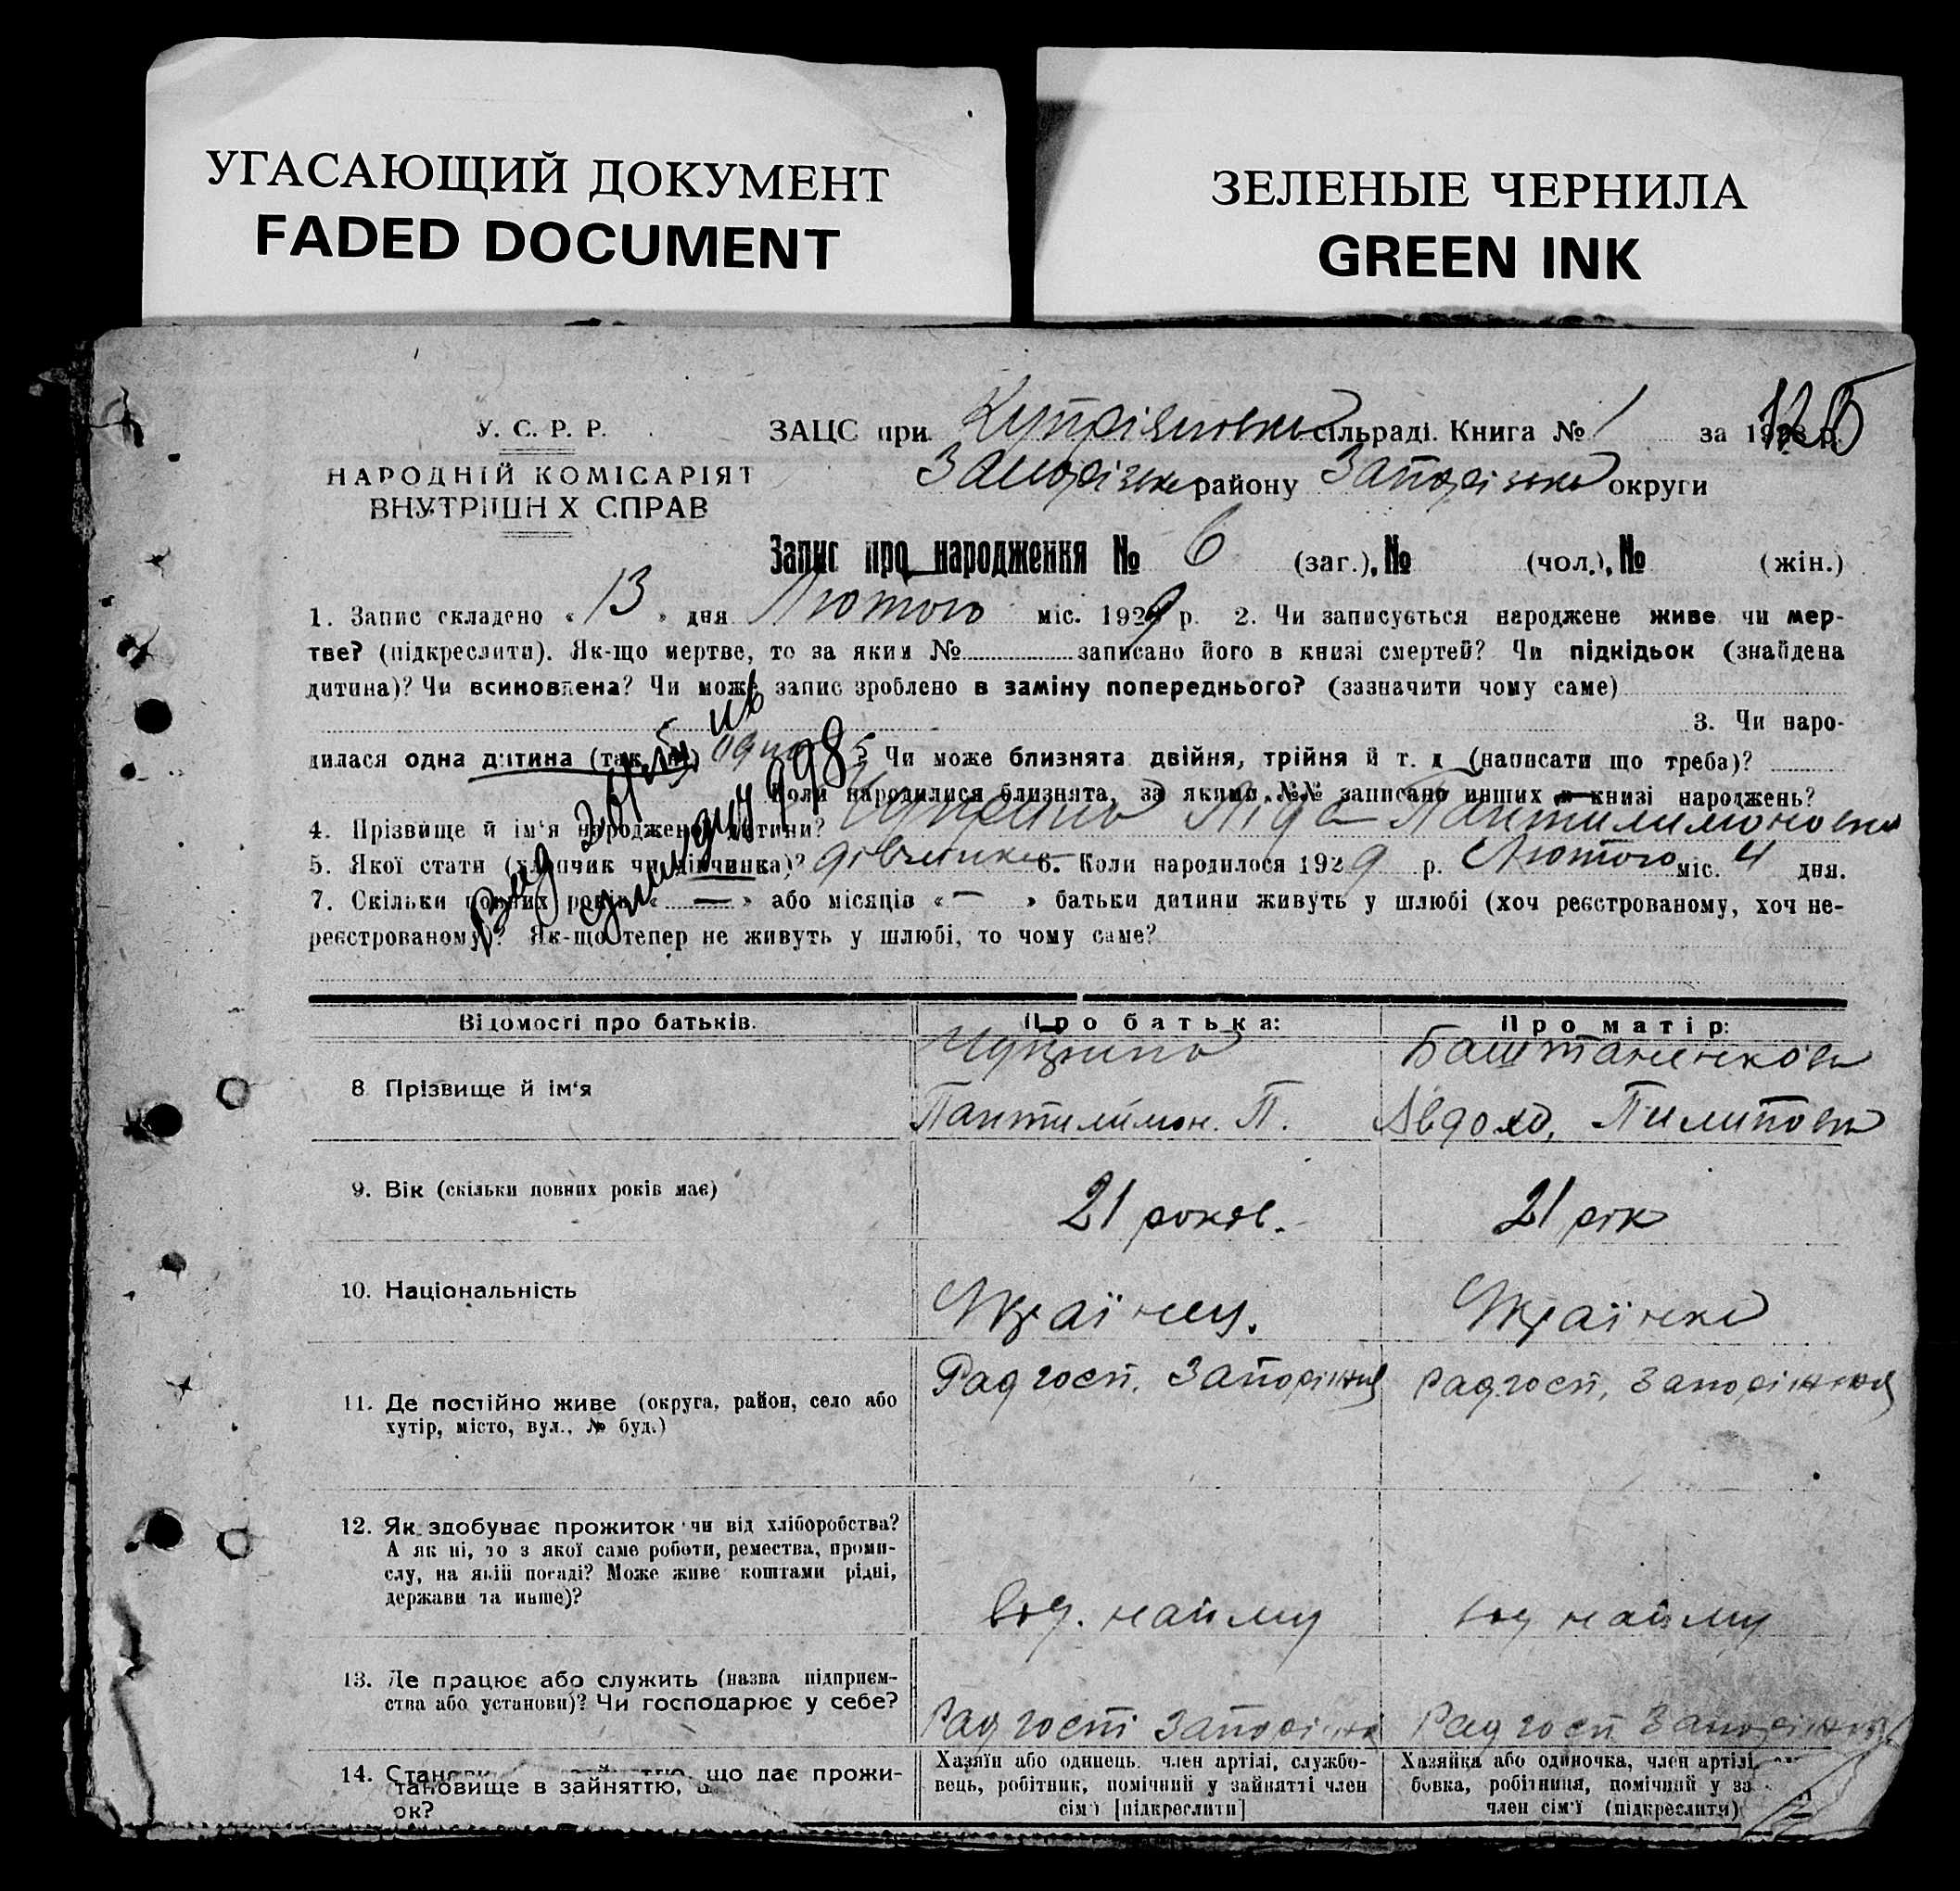 УГАСАЮЩИЙ ДОКУМЕНТ
FADED DOCUMENT
ЗЕЛЕНЫЕ ЧЕРНИЛА
GREEN INK
У. С. Р. Р.
НАРОДНІЙ КОМІСАРІЯТ
ВНУТРІШН Х СПРАВ
ЗАЦС при сільраді. Книга № 1 за 19 р.
району Запорізько округи
Запис про народження № 6 (заг.), № (чол.), № (жін.)
1. Запис складено « 13 » дня Лютого міс. 1929 р. 2. Чи записується народжене живе чи мер-
тве? (підкреслити). Як-що мертве, то за яким № записано його в книзі смертей? Чи підкідьок (знайдена
дитина)? Чи всиновлена? Чи може запис зроблено в заміну попереднього? (зазначити чому саме)
3. Чи наро-
дилася одна дитина (так, ні) одна ? Чи може близнята двійня, трійня й т. д (написати що треба)?
Коли народилися близнята, за якими №№ записано инших в книзі народжень?
4. Прізвище й ім'я народженої дитини? Чуприна Ліда Пантилимоновна
5. Якої стати (хлопчик чи дівчинка)? дівчинка 6. Коли народилося 1929 р. Лютого міс. 4 дня.
7. Скільки повних років « — » або місяців « — » батьки дитини живуть у шлюбі (хоч реєстрованому, хоч не-
реєстрованому)? Як-що тепер не живуть у шлюбі, то чому саме?
Відомості про батьків. Про батька: Про матір:
8 Прізвище й ім'я
Чуприна
Пантилимон. П.
Баштаненкова
Авдох. Пилипова
9. Вік (скільки повних років має) 21 років. 21 рік
10. Національність Українец. Українка
11. Де постійно живе (округа, район, село або
хутір, місто, вул., № буд.)
Радгосп. Запоріжжя
Радгосп. Запоріжжя
12. Як здобуває прожиток чи від хліборобства?
А як ні, то з якої саме роботи, ремества, проми-
слу, на якій посаді? Може живе коштами рідні,
держави та инше)?
від. найму від найму
13. Де працює або служить (назва підприєм-
ства або установи)? Чи господарює у себе?
Радгосп Запоріжжя Радгосп Запоріжжя
14. Станови що дає прожи-
тановище в зайняттю,
ок?
Хазяїн або одинець. член артілі, службо-
вець, робітник, помічний у зайнятті член
сім'ї [підкреслити]
Хазяйка або одиночка, член артілі,
бовка, робітниця, помічний у за
член сім'ї (підкреслити)